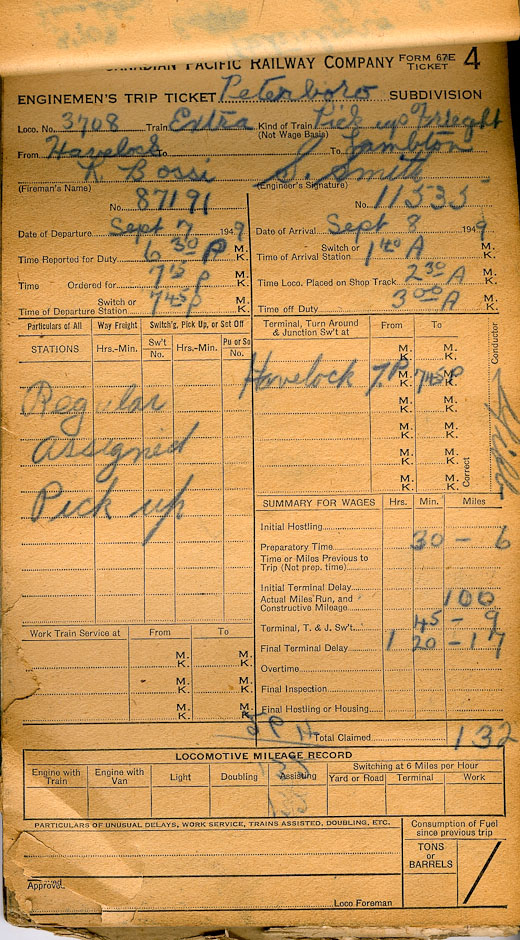 CANADIAN PACIFIC RAILWAY COMPANY FORM 67E TICKET 4
ENGINEMEN'S TRIP TICKET Peterboro SUBDIVISION
Loco. No. 3708 Train Extra Kind of Train (Not Wage Basis) Pick up Freight
From Havelock To Lambton
R Rossi S. Smith
(Fireman's Name) (Engineer's Signature)
No. 87191 No. 11535
Date of Departure Sept 7 1949 Date of Arrival Sept 8 1949
Time Reported for Duty 6 30 P M. K. Switch or Time of Arrival Station 1 40 A M. K.
Time Ordered for 7 15 P M. K. Time Loco. Placed on Shop Track 2 30 A M. K.
Switch or Time of Departure Station 7 45 P M. K. Time off Duty 3 00 A M. K.
Particulars of All Way Freight Switch'g, Pick Up, or Set Off Terminal, Turn Around & Junction Sw't at From To
STATIONS Hrs.-Min. Sw't No. Hrs.-Min. Pu or So No.
M. K. M. K.
Havelock 7 P M. K. 7 45 P M. K.
Regular
M. K. M. K.
assigned
M. K. M. K.
M. K. M. K.
Pick up
M. K. M. K.
Conductor
Correct
SUMMARY FOR WAGES Hrs. Min. Miles
Initial Hostling
Preparatory Time 30 - 6
Time or Miles Previous to Trip (Not prep. time)
Initial Terminal Delay
Actual Miles Run, and Constructive Mileage 100
Terminal, T. & J. Sw't. 45 - 9
Final Terminal Delay 1 20 - 17
Overtime
Final Inspection
Final Hostling or Housing
Total Claimed 132
Work Train Service at From To
M. K. M. K.
M. K. M. K.
M. K. M. K.
LOCOMOTIVE MILEAGE RECORD
Engine with Train Engine with Van Light Doubling Assisting Switching at 6 Miles per Hour
Yard or Road Terminal Work
PARTICULARS OF UNUSUAL DELAYS, WORK SERVICE, TRAINS ASSISTED, DOUBLING, ETC.
Consumption of Fuel since previous trip
TONS or BARRELS
Approved.
Loco Foreman